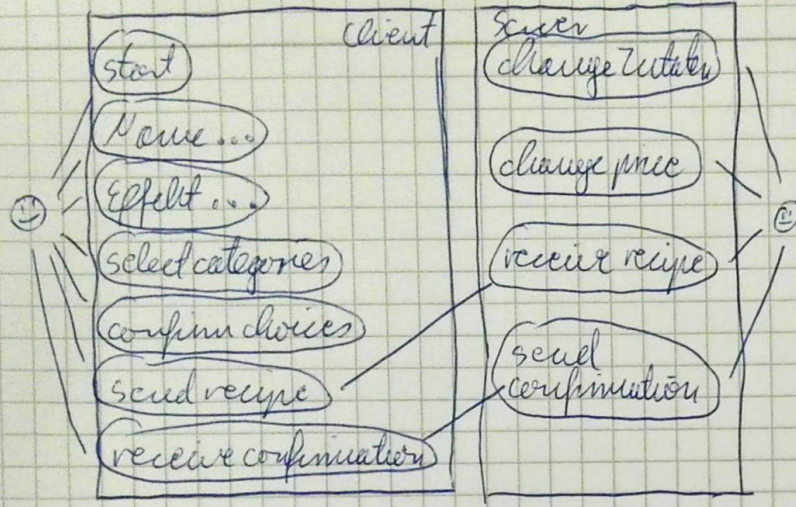 Client
start
Name ...
Effekt ...
select categories
confirm choices
send recipe
receive confirmation
Server
change Zutaten
change price
receive recipe
send
confirmation